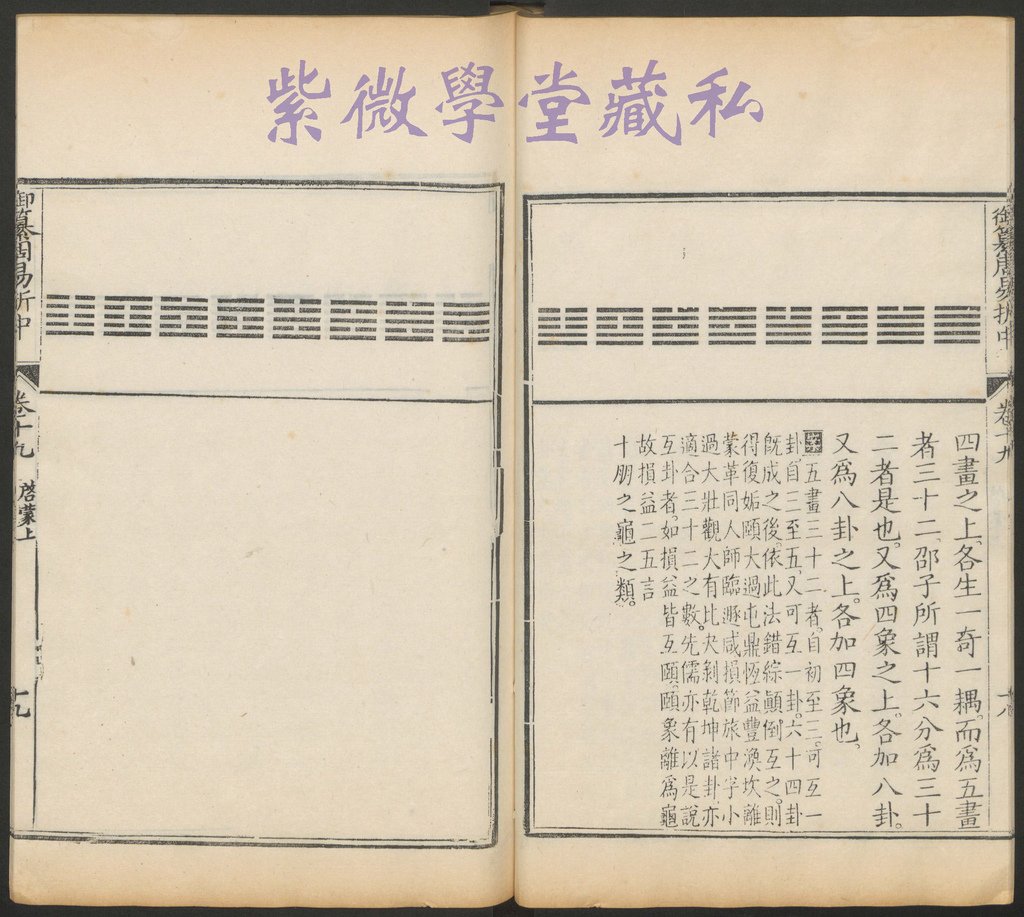 紫微學堂藏私
御纂周易折中
卷十九
十八
四畫之上。各生一奇一耦。而爲五畫
者三十二。邵子所謂十六分爲三十
二者是也。又爲四象之上。各加八卦。
又爲八卦之上。各加四象也。
案五畫三十二者。自初至三。可互一
卦。自三至五。又可互一卦。六十四卦
既成之後。依此法錯綜顛倒互之。則
得復姤頤大過屯鼎恆益豐渙坎離
蒙革同人師臨遯咸損節旅中孚小
過大壯觀大有比夬剝乾坤諸卦。亦
適合三十二之數。先儒亦有以是說
互卦者。如損益皆互頤。頤象離爲龜
故損益二五言
十朋之龜之類。
御纂周易折中
卷十九
啓蒙上
十九